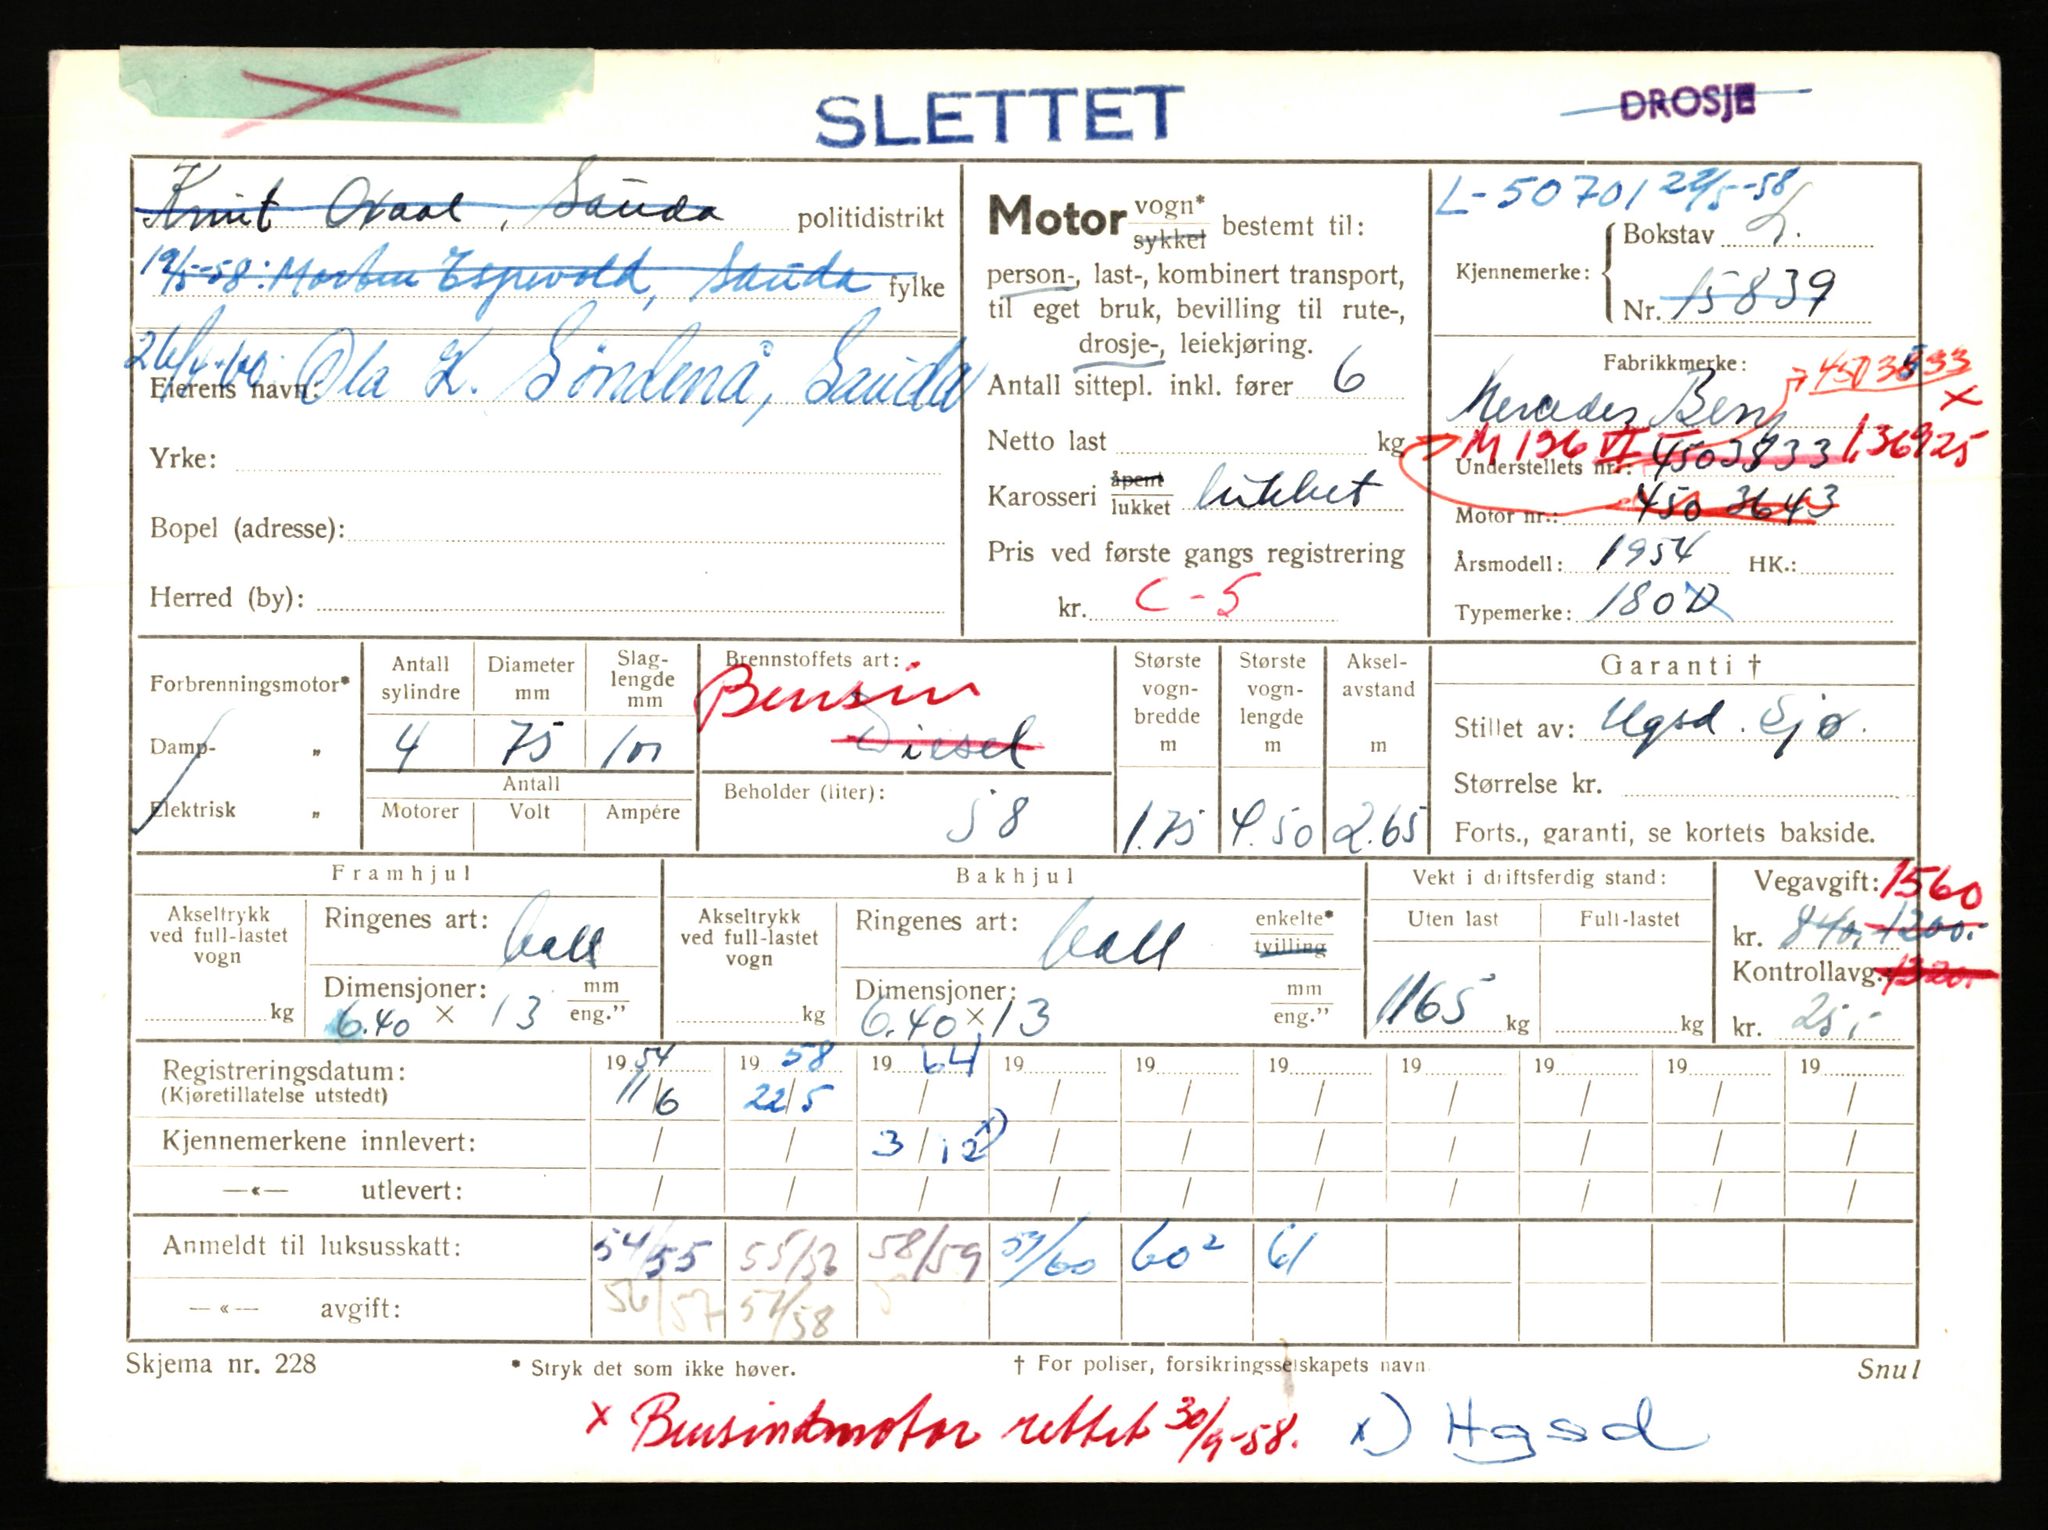 SLETTET
DROSJE
Knut Oxaal, Sauda politidistrikt
19/5-58: Morten Espevold, Sauda fylke
26/4-60. Ola K. Söndenå, Sauda
Eierens navn:
Yrke:
Bopel (adresse):
Herred (by):
Motor vogn* sykkel bestemt til:
person-, last-, kombinert transport,
til eget bruk, bevilling til rute-,
drosje-, leiekjøring.
Antall sittepl. inkl. fører 6
Netto last kg
Karosseri åpent lukket lukket
Pris ved første gangs registrering
kr. C-5
L-50701 22/5-58
Bokstav L.
Kjennemerke:
Nr. 15839
Fabrikkmerke: 4503533
Mercedes Benz x
M 136 VI 136925
Understellets nr.: 4503933
Motor nr.: 4503643
Årsmodell: 1954 HK.:
Typemerke: 180D
Forbrenningsmotor*
Damp- „
Elektrisk „
Antall sylindre
Diameter mm
Slag-lengde mm
4 75 100
Antall
Motorer Volt Ampére
Brennstoffets art:
Bensin
Diesel
Beholder (liter): 58
Største vogn-bredde m 1.75
Største vogn-lengde m 4.50
Aksel-avstand m 2.65
Garanti †
Stillet av: Hgsd. Sjø.
Størrelse kr.
Forts., garanti, se kortets bakside.
Framhjul
Akseltrykk ved full-lastet vogn kg
Ringenes art: ball
Dimensjoner: mm eng."
6.40 × 13
Bakhjul
Akseltrykk ved full-lastet vogn kg
Ringenes art: ball enkelte* tvilling
Dimensjoner: mm eng."
6.40 × 13
Vekt i driftsferdig stand:
Uten last Full-lastet
1165 kg kg
Vegavgift: 1560
kr. 840.- 1200.-
Kontrollavg.: 1320.-
kr. 25,-
Registreringsdatum: 19 54 19 58 19 64 19 19 19 19 19 19 19
(Kjøretillatelse utstedt) 11/6 22/5 / / / / / / / /
Kjennemerkene innlevert: / / 3/12 x) / / / / / / /
—«— utlevert: / / / / / / / / / /
Anmeldt til luksusskatt: 54/55 55/56 58/59 59/60 60² 61
—«— avgift: 56/57 57/58
Skjema nr. 228 * Stryk det som ikke høver. † For poliser, forsikringsselskapets navn. Snul
x Bensinmotor rettet 30/9-58. x) Hgsd